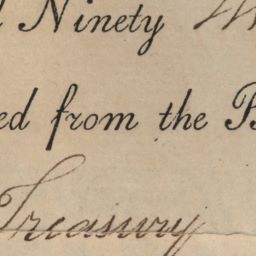 Ninety
from the
Treasury